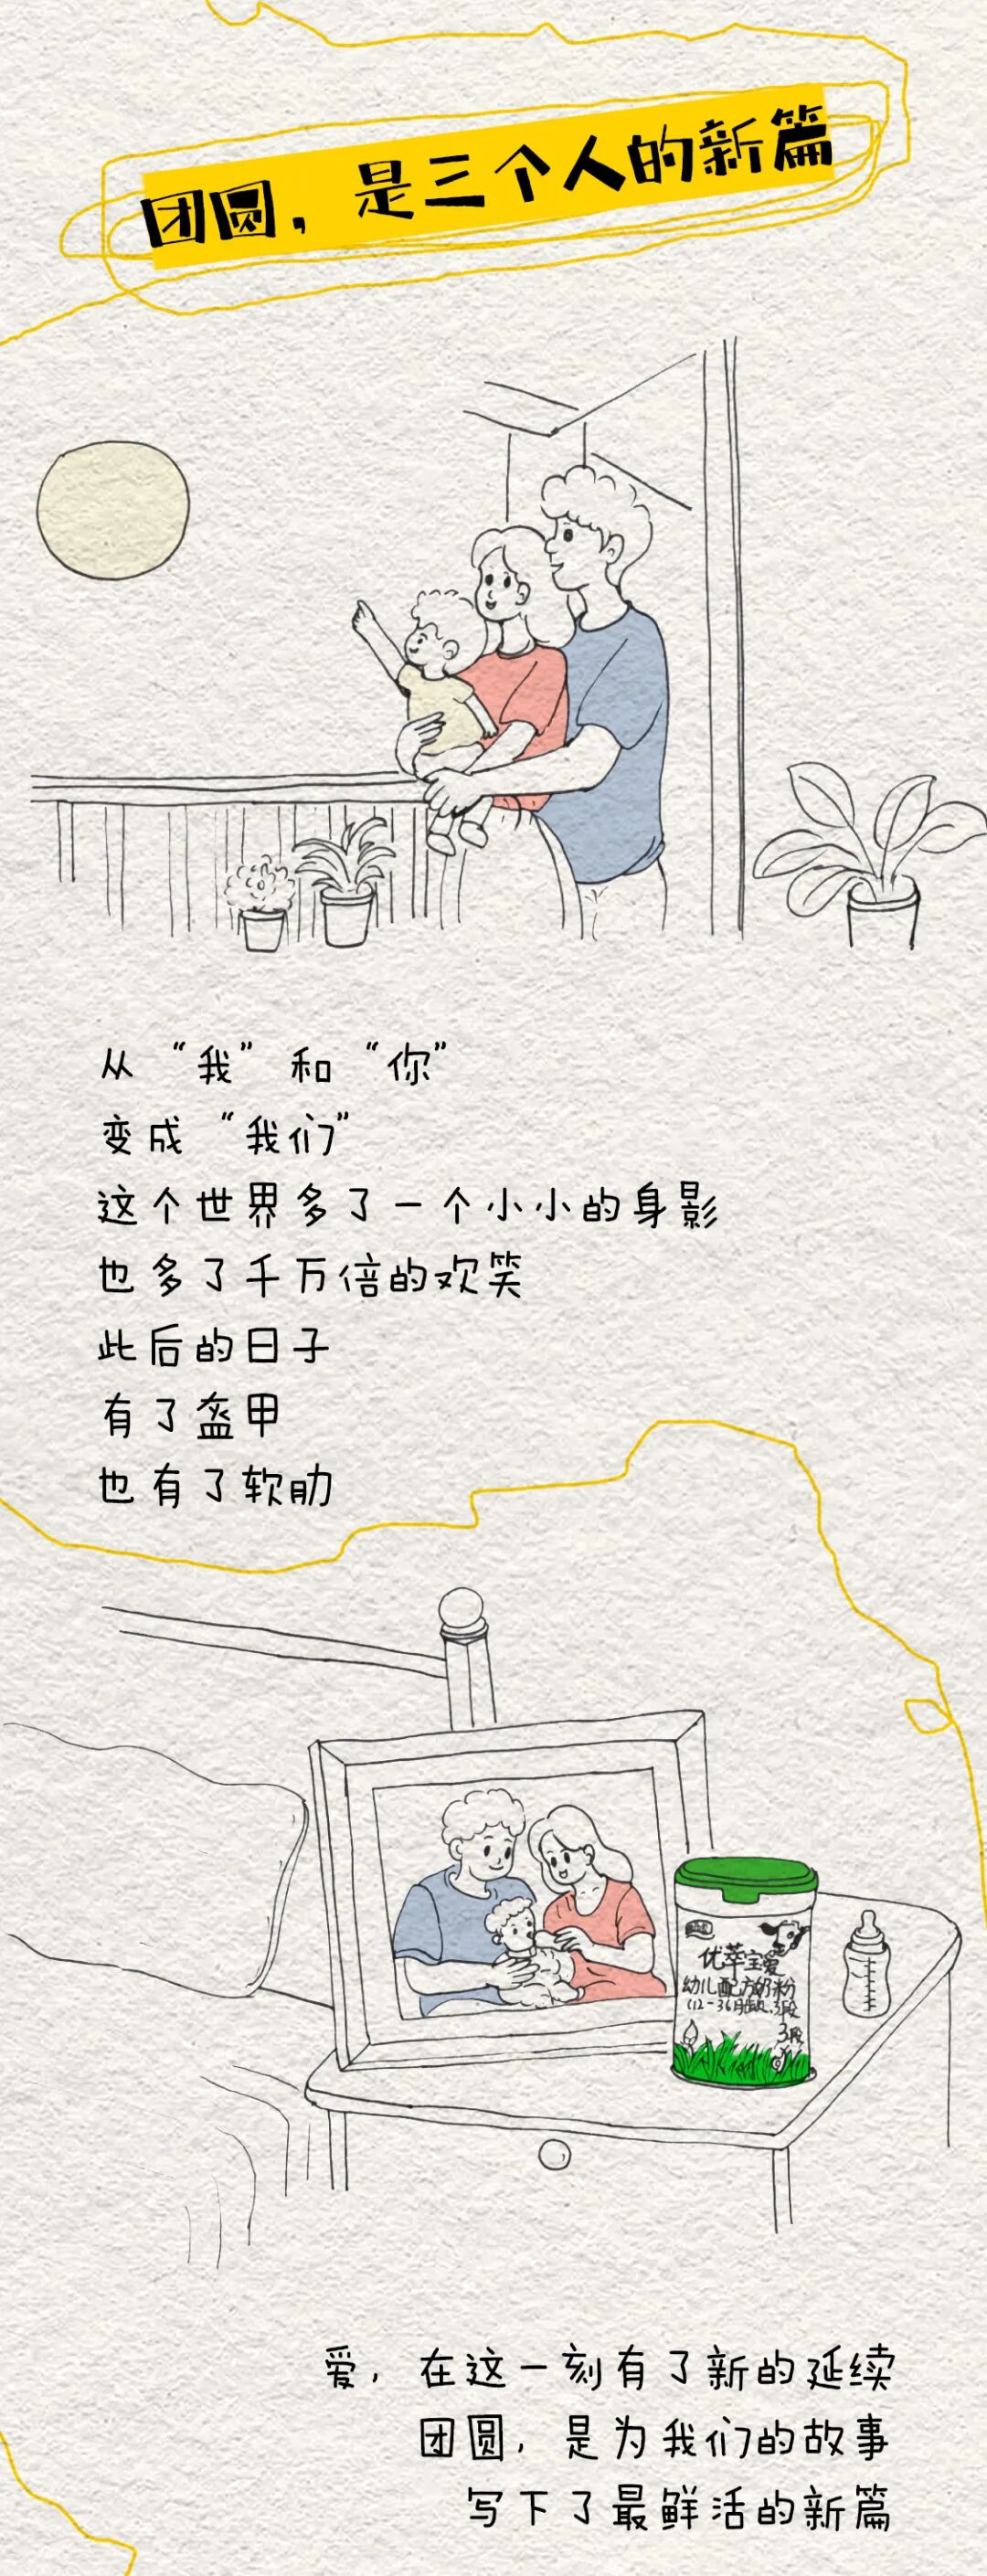 团圆，是三个人的新篇
从“我”和“你”
变成“我们”
这个世界多了一个小小的身影
也多了千万倍的欢笑
此后的日子
有了盔甲
也有了软肋
优萃宝爱
幼儿配方奶粉
(12-36月龄,3段)
3段
爱，在这一刻有了新的延续
团圆，是为我们的故事
写下了最鲜活的新篇